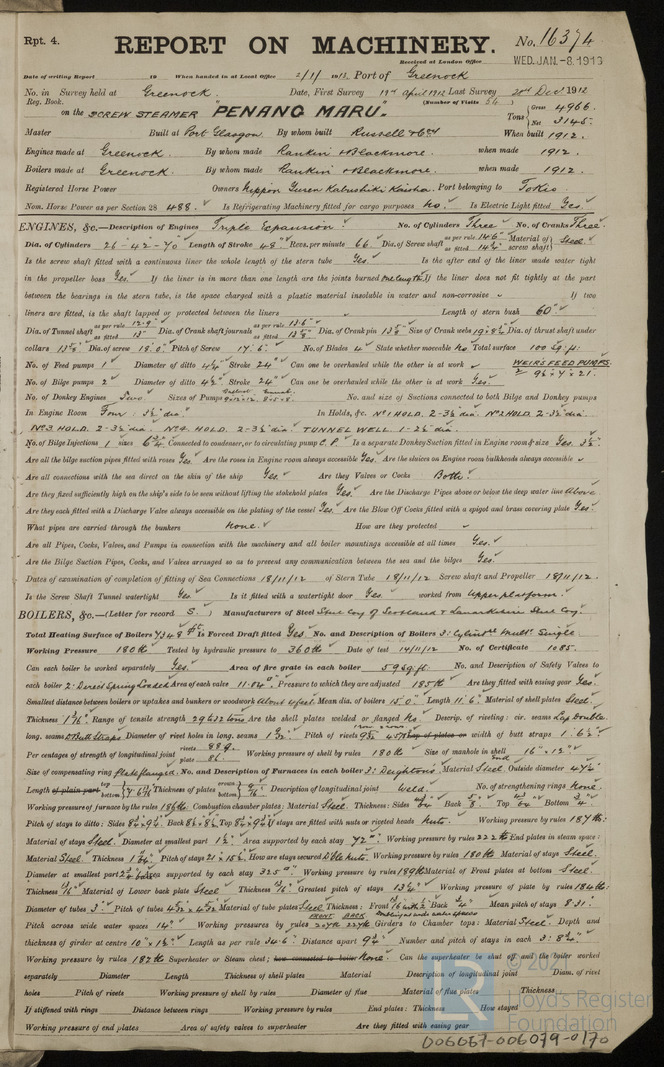 Rpt. 4.
REPORT ON MACHINERY. No. 16374
Received at London Office WED. JAN.-8.1913
Date of writing Report 19 When handed in at Local Office 2/1/ 1913 Port of Greenock
No. in Survey held at Greenock. Date, First Survey 19th April 1912 Last Survey Dec 1912
Reg. Book. (Number of Visits 54)
on the SCREW STEAMER "PENANG MARU". Tons Gross 4966. Net 3145.
Master Built at Port Glasgow By whom built Russell & Co When built 1912.
Engines made at Greenock. By whom made Rankin & Blackmore. when made 1912.
Boilers made at Greenock. By whom made Rankin & Blackmore. when made 1912.
Registered Horse Power Owners Nippon Yusen Kabushiki Kaisha Port belonging to Tokio
Nom. Horse Power as per Section 28 488. Is Refrigerating Machinery fitted for cargo purposes No. Is Electric Light fitted Yes.
ENGINES, &c.—Description of Engines Triple Expansion. No. of Cylinders Three No. of Cranks Three.
Dia. of Cylinders 26-42-70 Length of Stroke 48" Revs. per minute 66 Dia. of Screw shaft as per rule 14.6" as fitted Material of screw shaft Steel.
Is the screw shaft fitted with a continuous liner the whole length of the stern tube Yes. Is the after end of the liner made water tight
in the propeller boss Yes. If the liner is in more than one length are the joints burned one length If the liner does not fit tightly at the part
between the bearings in the stern tube, is the space charged with a plastic material insoluble in water and non-corrosive If two
liners are fitted, is the shaft lapped or protected between the liners Length of stern bush 60"
Dia. of Tunnel shaft as per rule 12.9" as fitted Dia. of Crank shaft journals as per rule 13.6" as fitted Dia. of Crank pin Size of Crank webs Dia. of thrust shaft under
collars Dia. of screw 18.0" Pitch of Screw 17.6" No. of Blades 4 State whether moveable No Total surface 100 sq. ft.
No. of Feed pumps 1 Diameter of ditto Stroke 24" Can one be overhauled while the other is at work WEIR'S FEED PUMPS.
No. of Bilge pumps 2 Diameter of ditto 4½" Stroke 24" Can one be overhauled while the other is at work Yes.
No. of Donkey Engines Two Sizes of Pumps No. and size of Suctions connected to both Bilge and Donkey pumps
In Engine Room Four: 3½" dia. In Holds, &c. No 1 HOLD. 2-3½" dia. No 2 HOLD. 2-3½" dia
No 3. HOLD. 2-3½" dia. No 4. HOLD. 2-3½" dia. TUNNEL WELL. 1-2½" dia.
No. of Bilge Injections 1 sizes Connected to condenser, or to circulating pump C.P. Is a separate Donkey Suction fitted in Engine room & size Yes. 3½"
Are all the bilge suction pipes fitted with roses Yes. Are the roses in Engine room always accessible Yes. Are the sluices on Engine room bulkheads always accessible
Are all connections with the sea direct on the skin of the ship Yes. Are they Valves or Cocks Both.
Are they fixed sufficiently high on the ship's side to be seen without lifting the stokehold plates Yes. Are the Discharge Pipes above or below the deep water line Above
Are they each fitted with a Discharge Valve always accessible on the plating of the vessel Yes. Are the Blow Off Cocks fitted with a spigot and brass covering plate Yes.
What pipes are carried through the bunkers None. How are they protected
Are all Pipes, Cocks, Valves, and Pumps in connection with the machinery and all boiler mountings accessible at all times Yes.
Are the Bilge Suction Pipes, Cocks, and Valves arranged so as to prevent any communication between the sea and the bilges Yes.
Dates of examination of completion of fitting of Sea Connections 18/11/12 of Stern Tube 18/11/12 Screw shaft and Propeller 18/11/12.
Is the Screw Shaft Tunnel watertight Yes Is it fitted with a watertight door Yes worked from Upper platform.
BOILERS, &c.—(Letter for record S.) Manufacturers of Steel Steel Coy of Scotland & Lanarkshire Steel Coy.
Total Heating Surface of Boilers 7348 Is Forced Draft fitted Yes No. and Description of Boilers 3: Cylindl. Multr. Single.
Working Pressure 180 lb Tested by hydraulic pressure to 360 lb Date of test 14/11/12 No. of Certificate 1085.
Can each boiler be worked separately Yes. Area of fire grate in each boiler 59 sq. ft. No. and Description of Safety Valves to
each boiler 2: Direct Spring Loaded Area of each valve 11.04" Pressure to which they are adjusted 185 lb Are they fitted with easing gear Yes.
Smallest distance between boilers or uptakes and bunkers or woodwork About 4 feet. Mean dia. of boilers 15.0" Length 11'.6" Material of shell plates Steel.
Thickness Range of tensile strength 29 to 32 tons Are the shell plates welded or flanged No. Descrip. of riveting: cir. seams Lap double.
long. seams D Butt Straps Diameter of rivet holes in long. seams Pitch of rivets Lap of plates or width of butt straps
Per centages of strength of longitudinal joint rivets 88.9. plate 86. Working pressure of shell by rules 180 lb Size of manhole in shell 16" x 12"
Size of compensating ring plate flanged. No. and Description of Furnaces in each boiler 3: Deighton's Material Steel Outside diameter
Length of plain part top bottom Thickness of plates crown bottom Description of longitudinal joint Weld. No. of strengthening rings None.
Working pressure of furnace by the rules 186 lb Combustion chamber plates: Material Steel. Thickness: Sides Back Top Bottom
Pitch of stays to ditto: Sides Back Top If stays are fitted with nuts or riveted heads Nuts. Working pressure by rules 187 lb
Material of stays Steel. Diameter at smallest part Area supported by each stay 72" Working pressure by rules 222 lb End plates in steam space:
Material Steel. Thickness Pitch of stays How are stays secured Dble nuts. Working pressure by rules 180 lb Material of stays Steel.
Diameter at smallest part Area supported by each stay 325" Working pressure by rules 189 lb Material of Front plates at bottom Steel.
Thickness Material of Lower back plate Steel Thickness Greatest pitch of stays Working pressure of plate by rules 184 lb
Diameter of tubes 3" Pitch of tubes Material of tube plates Steel Thickness: Front Back Mean pitch of stays 8.31"
Pitch across wide water spaces 14" Working pressures by rules FRONT BACK Girders to Chamber tops: Material Steel. Depth and
thickness of girder at centre Length as per rule 34.6" Distance apart Number and pitch of stays in each
Working pressure by rules 187 lb Superheater or Steam chest; how connected to boiler None. Can the superheater be shut off and the boiler worked
separately Diameter Length Thickness of shell plates Material Description of longitudinal joint Diam. of rivet
holes Pitch of rivets Working pressure of shell by rules Diameter of flue Material of flue plates Thickness
If stiffened with rings Distance between rings Working pressure by rules End plates: Thickness How stayed
Working pressure of end plates Area of safety valves to superheater Are they fitted with easing gear
© 2021
LR
Lloyd's Register
Foundation
006067-006079-0170